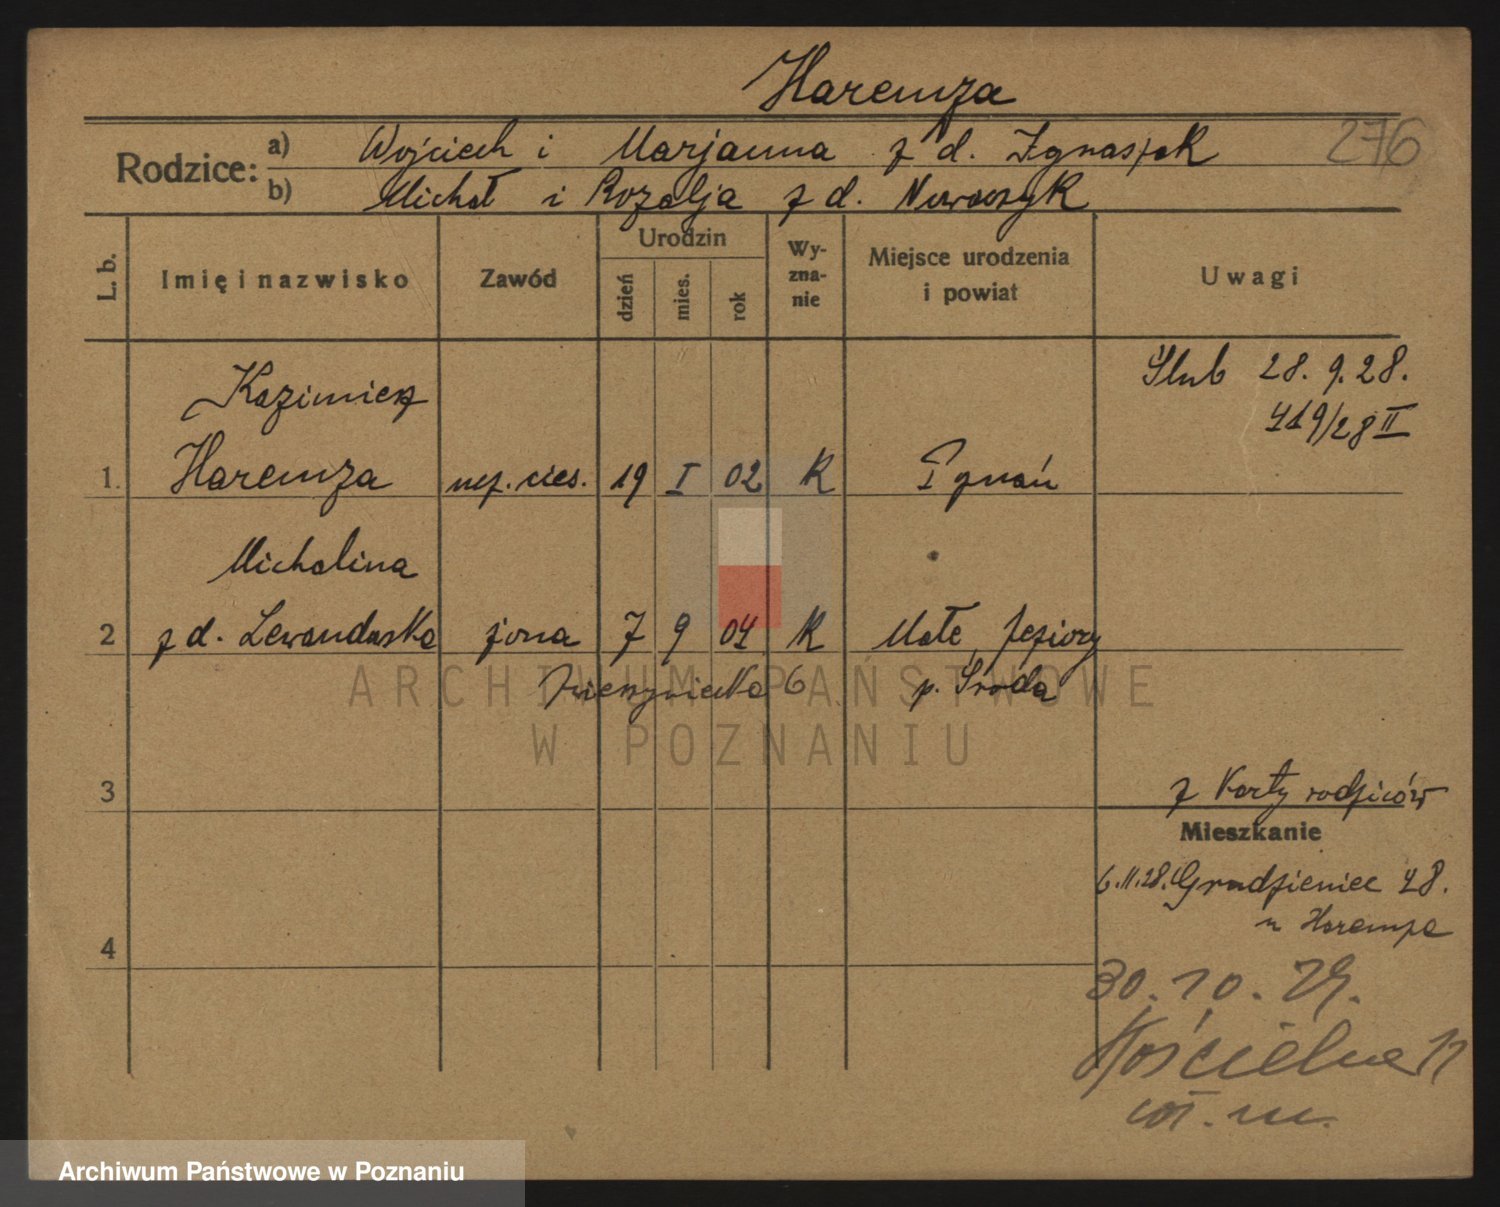 Haremza
276
Rodzice:
a) Wojciech i Marjanna z d. Ignasiak
b) Michał i Rozalja z d. Nowaczyk
L. b.
Imię i nazwisko
Zawód
Urodzin
dzień
mies.
rok
Wy-
zna-
nie
Miejsce urodzenia
i powiat
Uwagi
Ślub 28. 9. 28.
419/28 II
Kazimierz
1. Haremza
19 I 02 K Poznań
Michalina
2 z d. Lewandowska żona 7 9 04 K Małe Jeziory
6 p. Środa
ARCHIWUM PAŃSTWOWE
W POZNANIU
3
z Karty rodziców
Mieszkanie
6.11.28. Grudzieniec 48.
u Haremza
4
30. 10. 29.
Kościelna 17
wł. m.
Archiwum Państwowe w Poznaniu